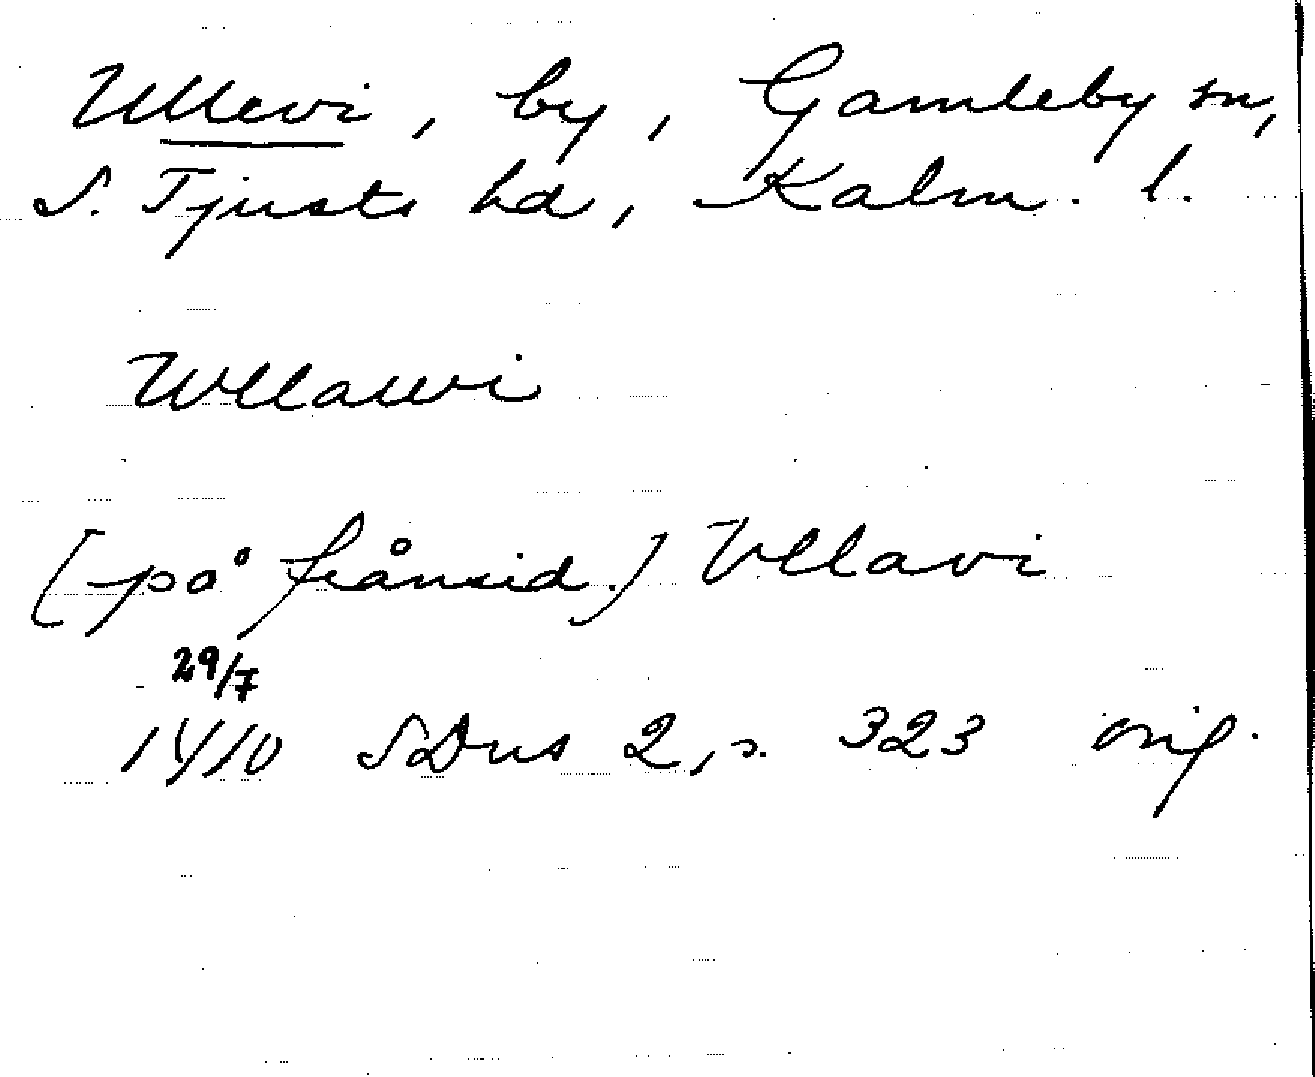 Ullevi, by, Gamleby sn,
S. Tjusts hd, Kalm. l.
Wllawi
(på frånsid.) Vllavi
29/7
1410 SDns 2, s. 323 orig.